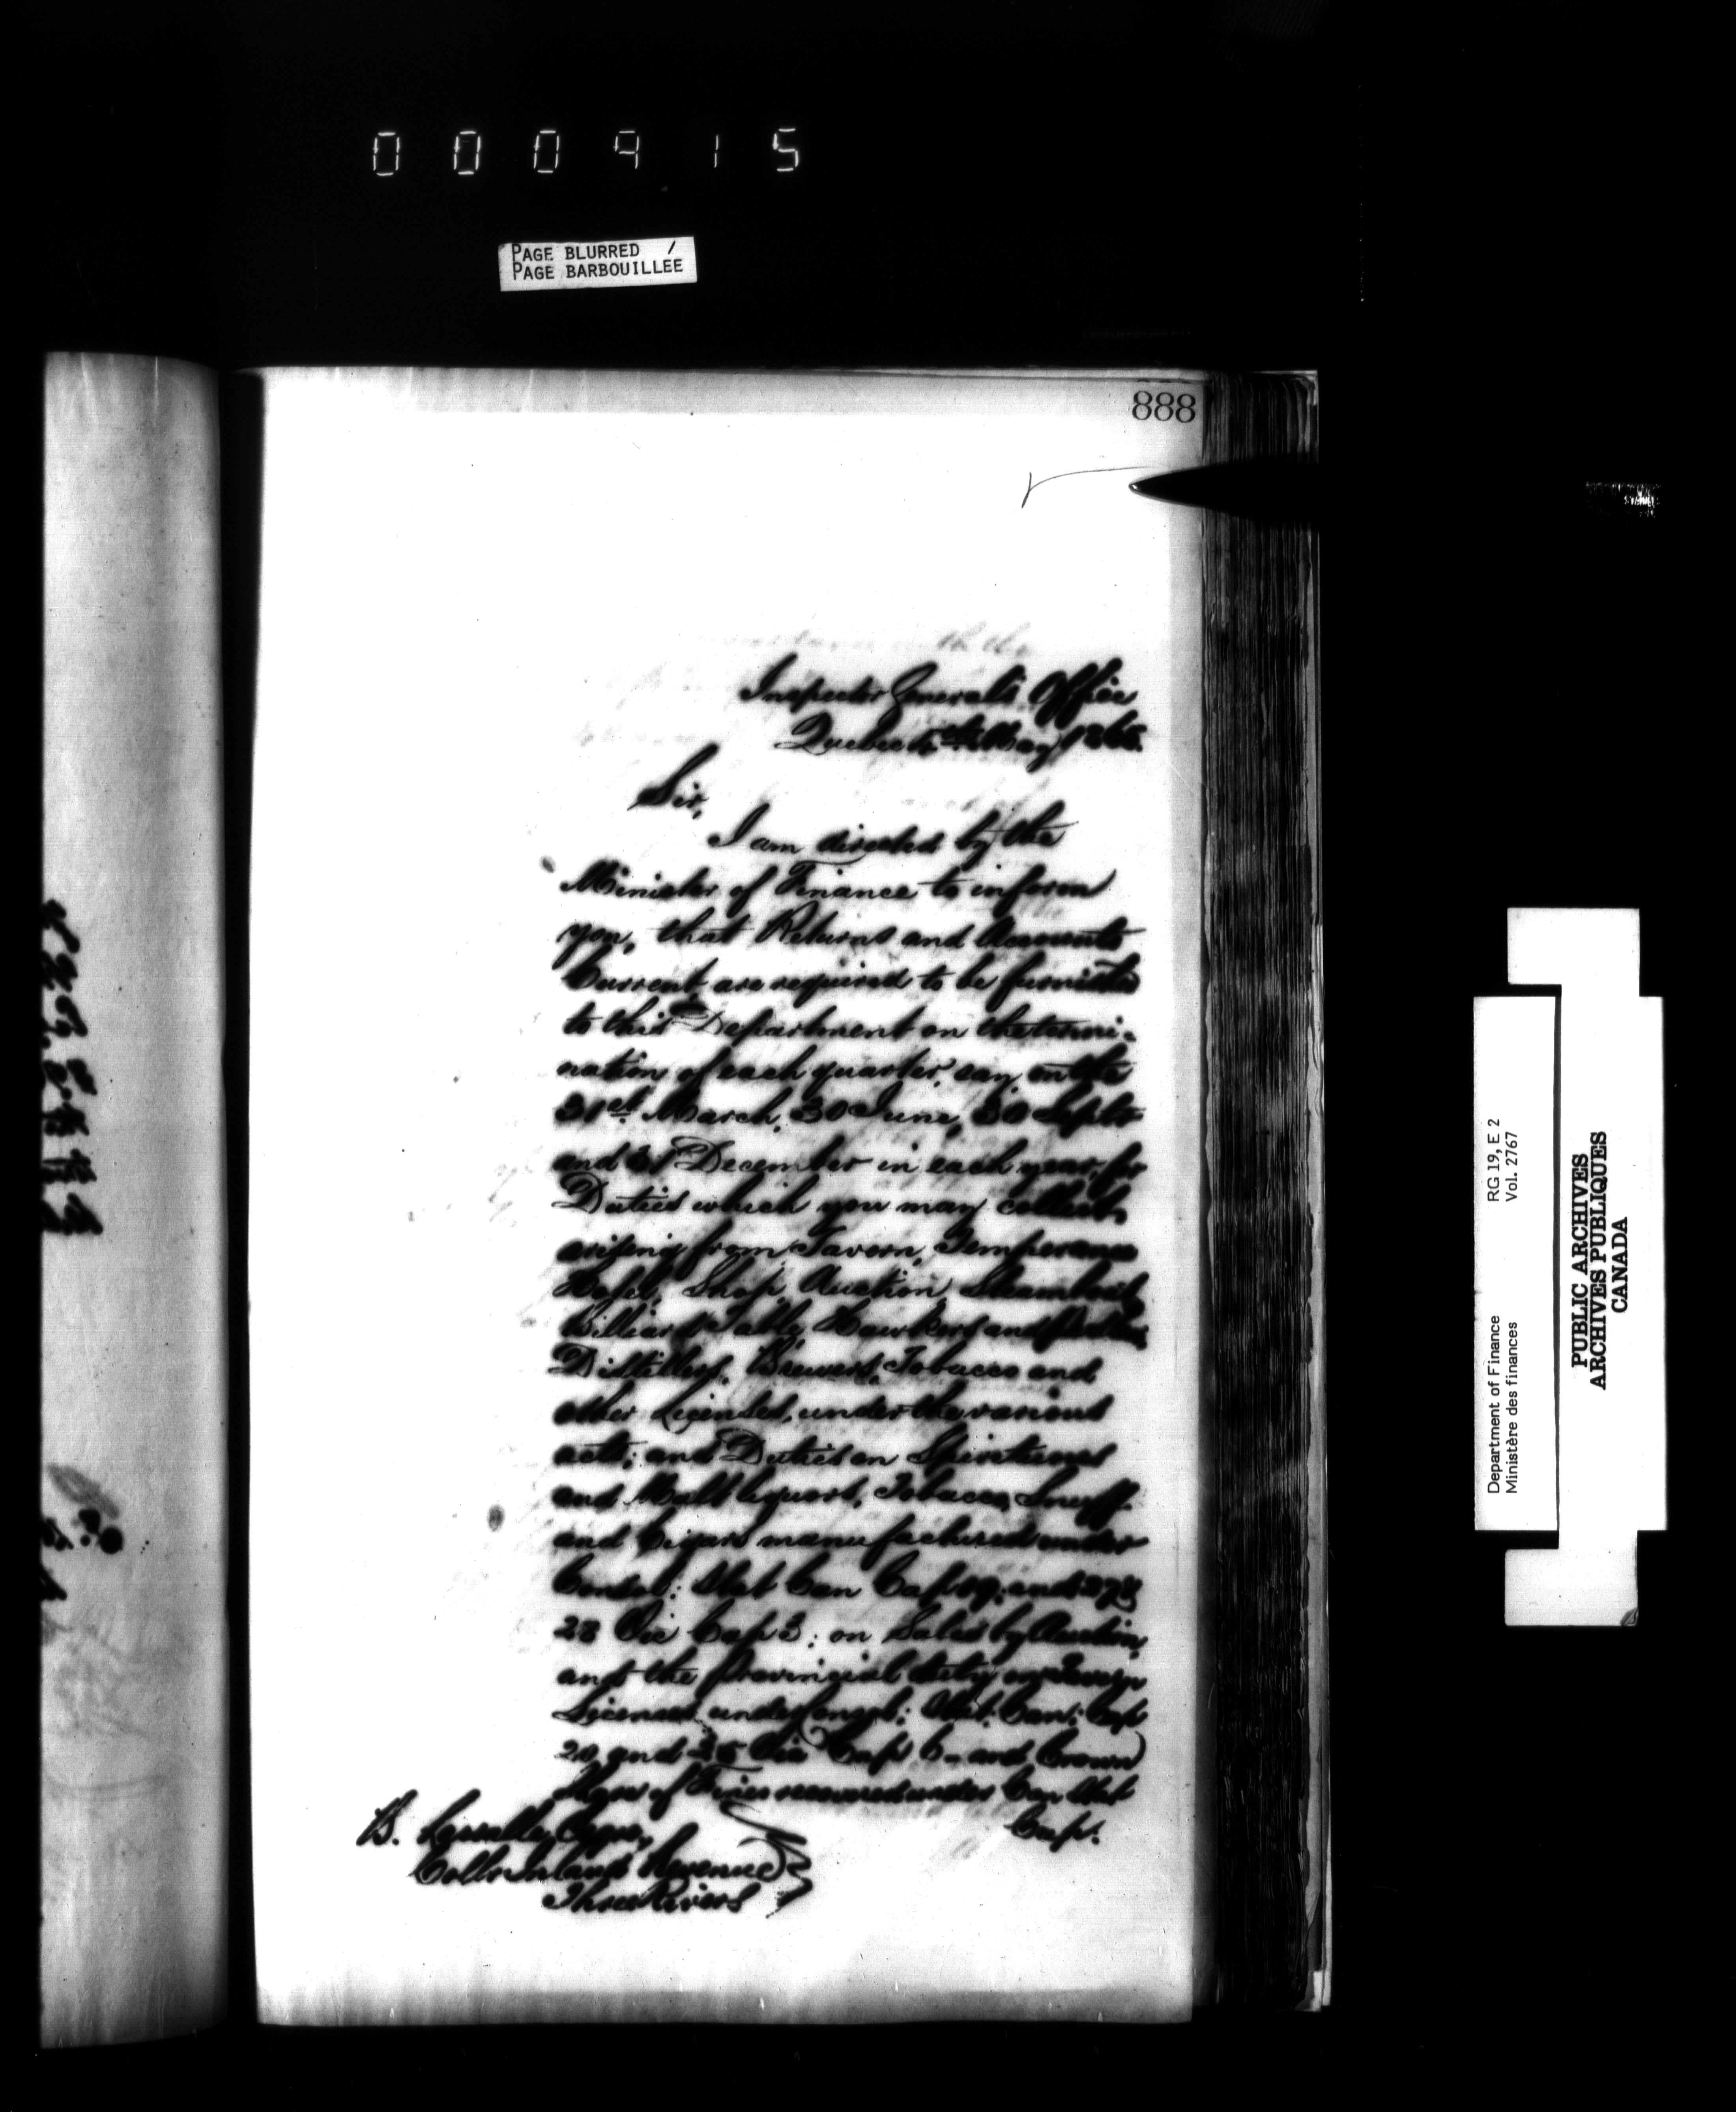 000915
PAGE BLURRED /
PAGE BARBOUILLÉE
888
Inspector General's Office
Quebec 5th May 1865.
Sir,
I am directed by the
Minister of Finance to inform
you, that Returns and Accounts
Current are required to be furnished
to this Department on the termi-
nation of each quarter, say, on the
31st March, 30 June, 30 Septr
and 31 December in each year, for
Duties which you may collect,
arising from Tavern, Temperance
Hotel, Shop, Auction, Steamboat,
Billiard Table, Hawkers and Pedlars,
Distillers, Brewers, Tobacco and
other Licenses, under the various
acts; and Duties on Spirituous
and Malt liquors, Tobacco, Snuff
and Cigars manufactured under
Consol: Stat Can Cap 19, and 27 &
28 Vic Cap 3; on Sales by Auction,
and the Provincial duty on Tavern
Licenses under Consol: Stat. Can: Cap
20, and 25 Vic Cap 6 - and Crown
Share of Fines recovered under Con Stat
Cap.
B. Esqre,
Collr Inland Revenue
Three Rivers
Department of Finance RG 19, E 2
Ministère des finances Vol. 2767
PUBLIC ARCHIVES
ARCHIVES PUBLIQUES
CANADA